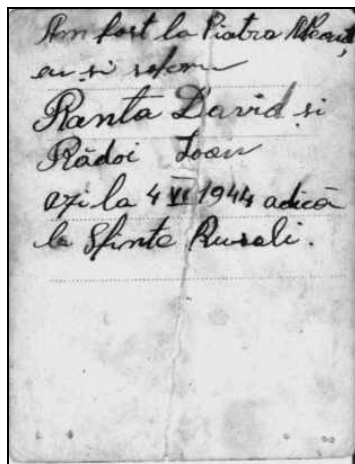 Am fost la Piatra Neamț
eu și
Ranta David și
Rădoi Ioan
azi la 4 VI 1944 adică
la Sfinte Rusali.